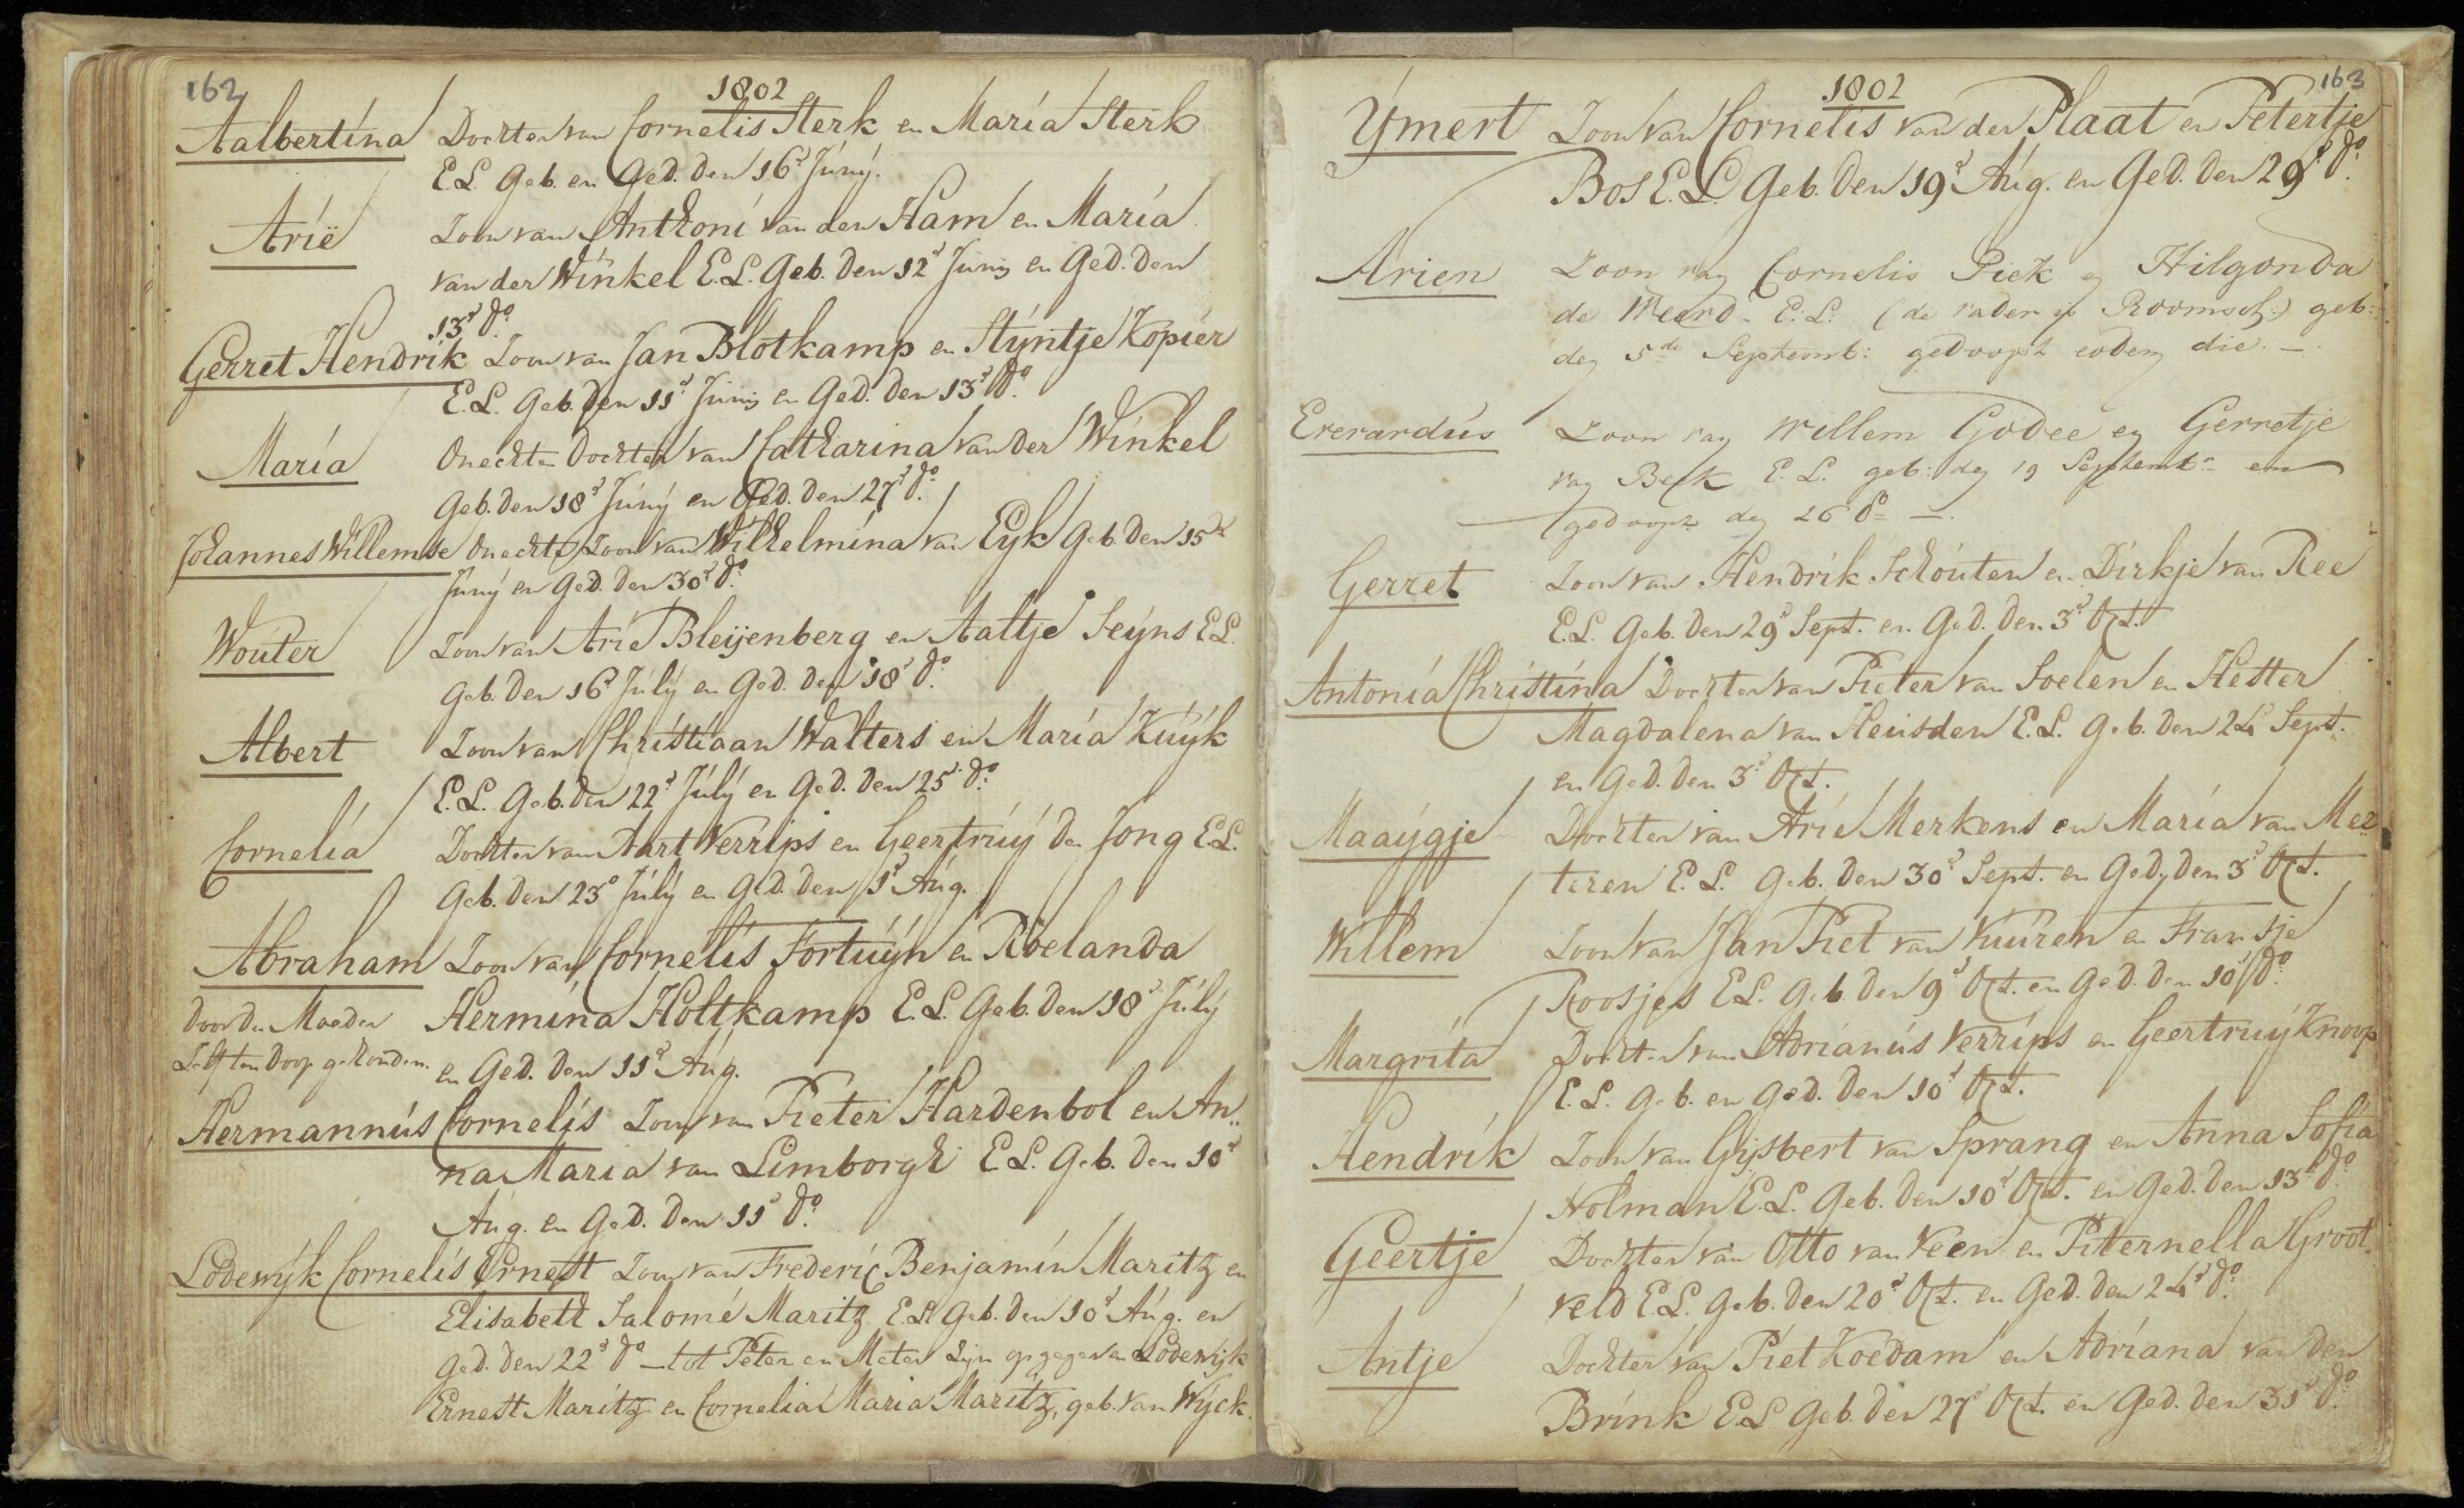 162
1802
Aalbertina Dochter van Cornelis Sterk en Maria Sterk
E.L. Geb. en Ged. den 16ᵈ Juny.
Arië Zoon van Anthoni van den Ham en Maria
van der Winkel E.L. Geb. den 12ᵈ Juny en Ged. den
13ᵈ dᵒ.
Gerret Hendrik Zoon van Jan Blotkamp en Styntje Kopier
E.L. Geb. den 11ᵈ Juny en Ged. den 13ᵈ dᵒ.
Maria Onechte Dochter van Catharina van der Winkel
Geb. den 18ᵈ Juny en Ged. den 27ᵈ dᵒ.
Johannes Willemse Onechte Zoon van Wilhelmina van Eyk Geb. den 15ᵈᵉ
Juny en Ged. den 30ᵈ dᵒ.
Wouter Zoon van Arie Bleijenberg en Aaltje Seyns E.L.
Geb. den 16ᵈ July en Ged. den 18ᵈ dᵒ.
Albert Zoon van Christiaan Walters en Maria Kuyk
E.L. Geb. den 22ᵈ July en Ged. den 25ᵈ dᵒ.
Cornelia Dochter van Aart Verrips en Geertruy de Jong E.L.
Geb. den 23ᵈ July en Ged. den 1ᵈ Aug.
Abraham Zoon van Cornelis Fortuyn en Roelanda
door de Moeder Hermina Holtkamp E.L. Geb. den 18ᵈ July
Zelf ten doop gehouden. en Ged. den 11ᵈ Aug.
Hermannus Cornelis Zoon van Pieter Hardenbol en An„
na Maria van Limborgh E.L. Geb. den 10ᵈ
Aug. en Ged. den 11ᵈ dᵒ.
Lodewyk Cornelis Ernest Zoon van Frederic Benjamin Maritz en
Elisabeth Salomé Maritz E.L. Geb. den 10ᵈ Aug. en
Ged. den 22ᵈ dᵒ — tot Peter en Meter zijn opgegeven Lodewyk
Ernest Maritz en Cornelia Maria Maritz, geb. van Wyck.
163
1802
Ymert Zoon van Cornelis van der Plaat en Petertje
Bos E.L. Geb. den 19ᵈ Aug. en Ged. den 29ᵈ dᵒ.
Arien Zoon van Cornelis Piek en Hilgonda
de Weerd - E:L: (de vader is Roomsch:) geb:
den 5ᵈᵉ Septemb: gedoopt eodem die. —
Everardus Zoon van Willem Godee en Gerretje
van Beek E.L. geb: den 19 Septembʳ en
gedoopt den 26 dᵒ —.
Gerret Zoon van Hendrik Schouten en Dirkje van Ree
E.L. Geb. den 29ᵈ Sept. en Ged. den 3ᵈ Oct.
Antonia Christina Dochter van Pieter van Soelen en Hester
Magdalena van Heusden E.L. Geb. den 24ᵈ Sept.
en Ged. den 3ᵈ Oct.
Maaygje Dochter van Arie Merkens en Maria van Me„
teren E.L. Geb. den 30ᵈ Sept. en Ged. den 3ᵈ Oct.
Willem Zoon van Jan Piet van Vuuren en Fransje
Roosjes E.L. Geb. den 9ᵈ Oct. en Ged. den 10ᵈ dᵒ.
Margrita Dochter van Adrianus Verrips en Geertruy Knoop
E.L. Geb. en Ged. den 10ᵈ Oct.
Hendrik Zoon van Gysbert van Sprang en Anna Sofia
Holman E.L. Geb. den 10ᵈ Oct. en Ged. den 13ᵈ dᵒ.
Geertje Dochter van Otto van Veen en Piternella Groot„
veld E.L. Geb. den 20ᵈ Oct. en Ged. den 24ᵈ dᵒ.
Antje Dochter van Piet Koedam en Adriana van den
Brink E.L. Geb. den 27ᵈ Oct. en Ged. den 31ᵈ dᵒ.